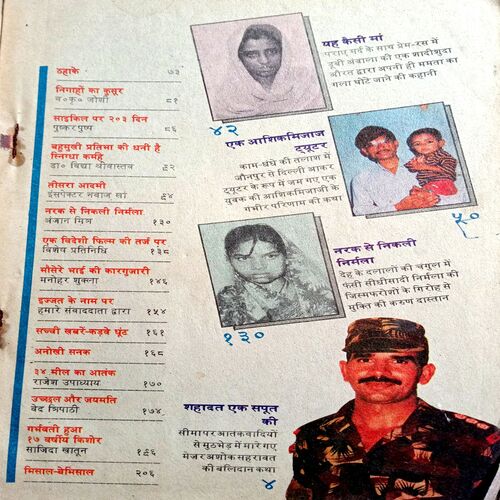 ठहाके ७३
निगाहों का कुसूर
ब० कृ० जोशी ८१
साइकिल पर २०३ दिन
पुष्कर पुष्प ८६
बहुमुखी प्रतिभा की धनी है
स्निग्धा कर्महे
डा० विद्या श्रीवास्तव ९२
तीसरा आदमी
इंसपेक्टर नवाज खां ९४
नरक से निकली निर्मला
अंजान मित्र १३०
एक विदेशी फिल्म की तर्ज पर
विशेष प्रतिनिधि १३८
मौसेरे भाई की कारगुजारी
मनोहर शुक्ला १४६
इज्जत के नाम पर
हमारे संवाददाता द्वारा १५४
सच्ची खबरें-कड़वे घूंट १६१
अनोखी सनक १६८
३४ मील का आतंक
राजेश उपाध्याय १७०
उच्छृंल और जयमति
वेद त्रिपाठी १७४
गर्भवती हुआ
१७ वर्षीय किशोर
साजिदा खातून १९६
मिसाल-बेमिसाल २०६
यह कैसी मां
पराए मर्द के साथ प्रेम-रस में
डूबी अंबाला की एक शादीशुदा
औरत द्वारा अपनी ही ममता का
गला घोंटे जाने की कहानी
४२
एक आशिकमिजाज
ट्यूटर
काम-धंधे की तलाश में
जौनपुर से दिल्ली आकर
ट्यूटर के रूप में जम गए एक
युवक की आशिकमिजाजी के
गंभीर परिणाम की कथा
५०
नरक से निकली
निर्मला
देह के दलालों की चंगुल में
फंसी सीधीसादी निर्मला की
जिस्मफरोशों के गिरोह से
मुक्ति की करुण दास्तान
१३०
शहादत एक सपूत
की
सीमा पर आतंकवादियों
से मुठभेड़ में मारे गए
मेजर अशोक सहरावत
की बलिदान कथा
४